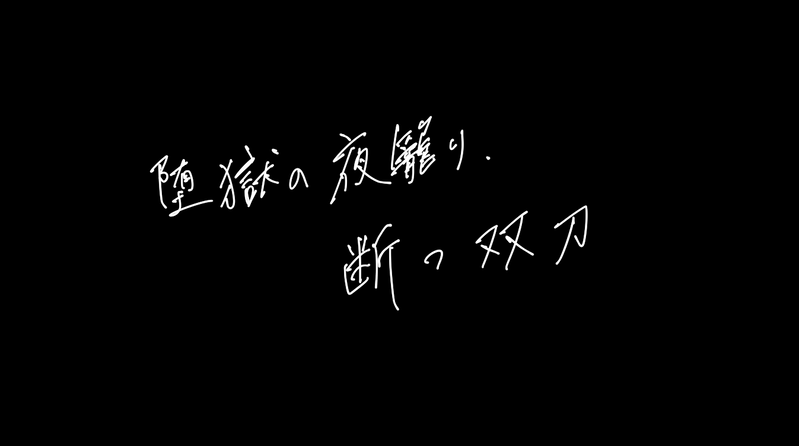 堕獄の夜籠り.
断つ双刀